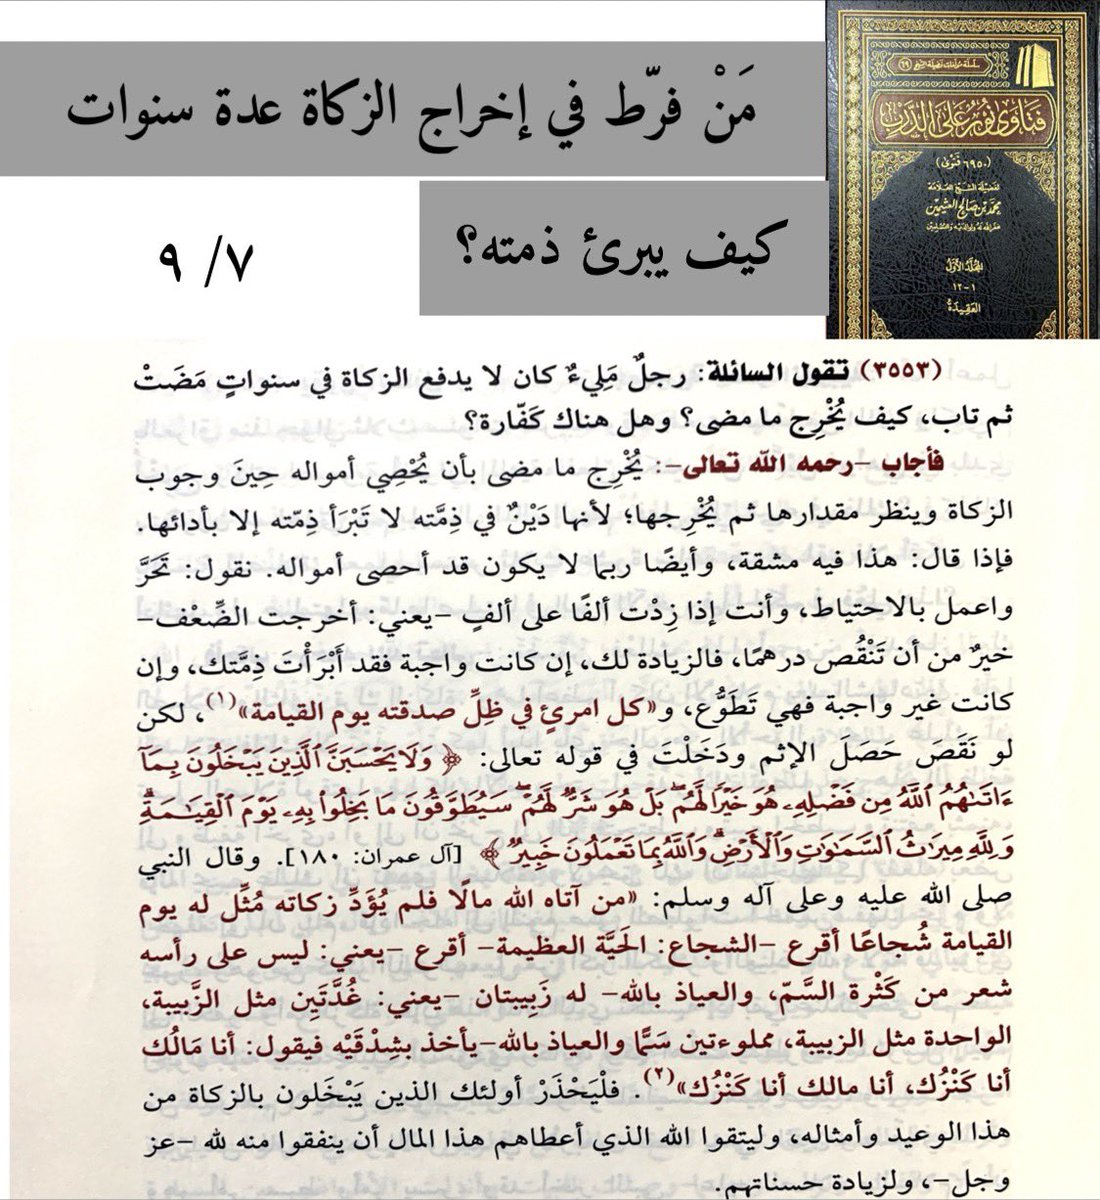 مَنْ فرّط في إخراج الزكاة عدة سنوات
كيف يبرئ ذمته؟
٩ /٧
سلسلة مؤلفات فضيلة الشيخ (٦٩)
فتاوى نور على الدرب
(٦٩٥٠ فتوى)
لفضيلة الشيخ العلامة
محمد بن صالح العثيمين
غفر الله له ولوالديه وللمسلمين
المجلد الأول
١-١٢
العقيدة
(٣٥٥٣) تقول السائلة: رجلٌ مَلِيءٌ كان لا يدفع الزكاة في سنواتٍ مَضَتْ
ثم تاب، كيف يُخْرِج ما مضى؟ وهل هناك كَفّارة؟
فأجاب -رحمه الله تعالى-: يُخْرِج ما مضى بأن يُحْصِي أمواله حِينَ وجوب
الزكاة وينظر مقدارها ثم يُخْرِجها؛ لأنها دَيْنٌ في ذِمَّته لا تَبْرَأ ذِمّته إلا بأدائها.
فإذا قال: هذا فيه مشقة، وأيضًا ربما لا يكون قد أحصى أمواله. نقول: تَحَرَّ
واعمل بالاحتياط، وأنت إذا زِدْت ألفًا على ألفٍ -يعني: أخرجت الضِّعْف-
خيرٌ من أن تَنْقُص درهمًا، فالزيادة لك، إن كانت واجبة فقد أَبْرَأْتَ ذِمَّتك، وإن
كانت غير واجبة فهي تَطَوُّع، و«كل امرئٍ في ظِلِّ صدقته يوم القيامة»(١)، لكن
لو نَقَصَ حَصَلَ الإثم ودَخَلْتَ في قوله تعالى: ﴿ وَلَا يَحْسَبَنَّ ٱلَّذِينَ يَبْخَلُونَ بِمَآ
ءَاتَىٰهُمُ ٱللَّهُ مِن فَضْلِهِۦ هُوَ خَيْرًا لَّهُم ۖ بَلْ هُوَ شَرٌّ لَّهُمْ ۖ سَيُطَوَّقُونَ مَا بَخِلُوا۟ بِهِۦ يَوْمَ ٱلْقِيَـٰمَةِ ۗ
وَلِلَّهِ مِيرَٰثُ ٱلسَّمَـٰوَٰتِ وَٱلْأَرْضِ ۗ وَٱللَّهُ بِمَا تَعْمَلُونَ خَبِيرٌ ﴾ [آل عمران: ١٨٠]. وقال النبي
صلى الله عليه وعلى آله وسلم: «من آتاه الله مالًا فلم يُؤَدِّ زكاته مُثِّل له يوم
القيامة شُجاعًا أقرع -الشجاع: الحَيَّة العظيمة- أقرع -يعني: ليس على رأسه
شعر من كَثْرة السَّمّ، والعياذ بالله- له زَبِيبتان -يعني: غُدَّتَيِن مثل الزَّبيبة،
الواحدة مثل الزبيبة، مملوءتين سَمًّا والعياذ بالله-يأخذ بشِدْقَيْه فيقول: أنا مَالُك
أنا كَنْزُك، أنا مالك أنا كَنْزُك»(٢). فلْيَحْذَرْ أولئك الذين يَبْخَلون بالزكاة من
هذا الوعيد وأمثاله، وليتقوا الله الذي أعطاهم هذا المال أن ينفقوا منه لله -عز
وجل-، ولزيادة حسناتهم.